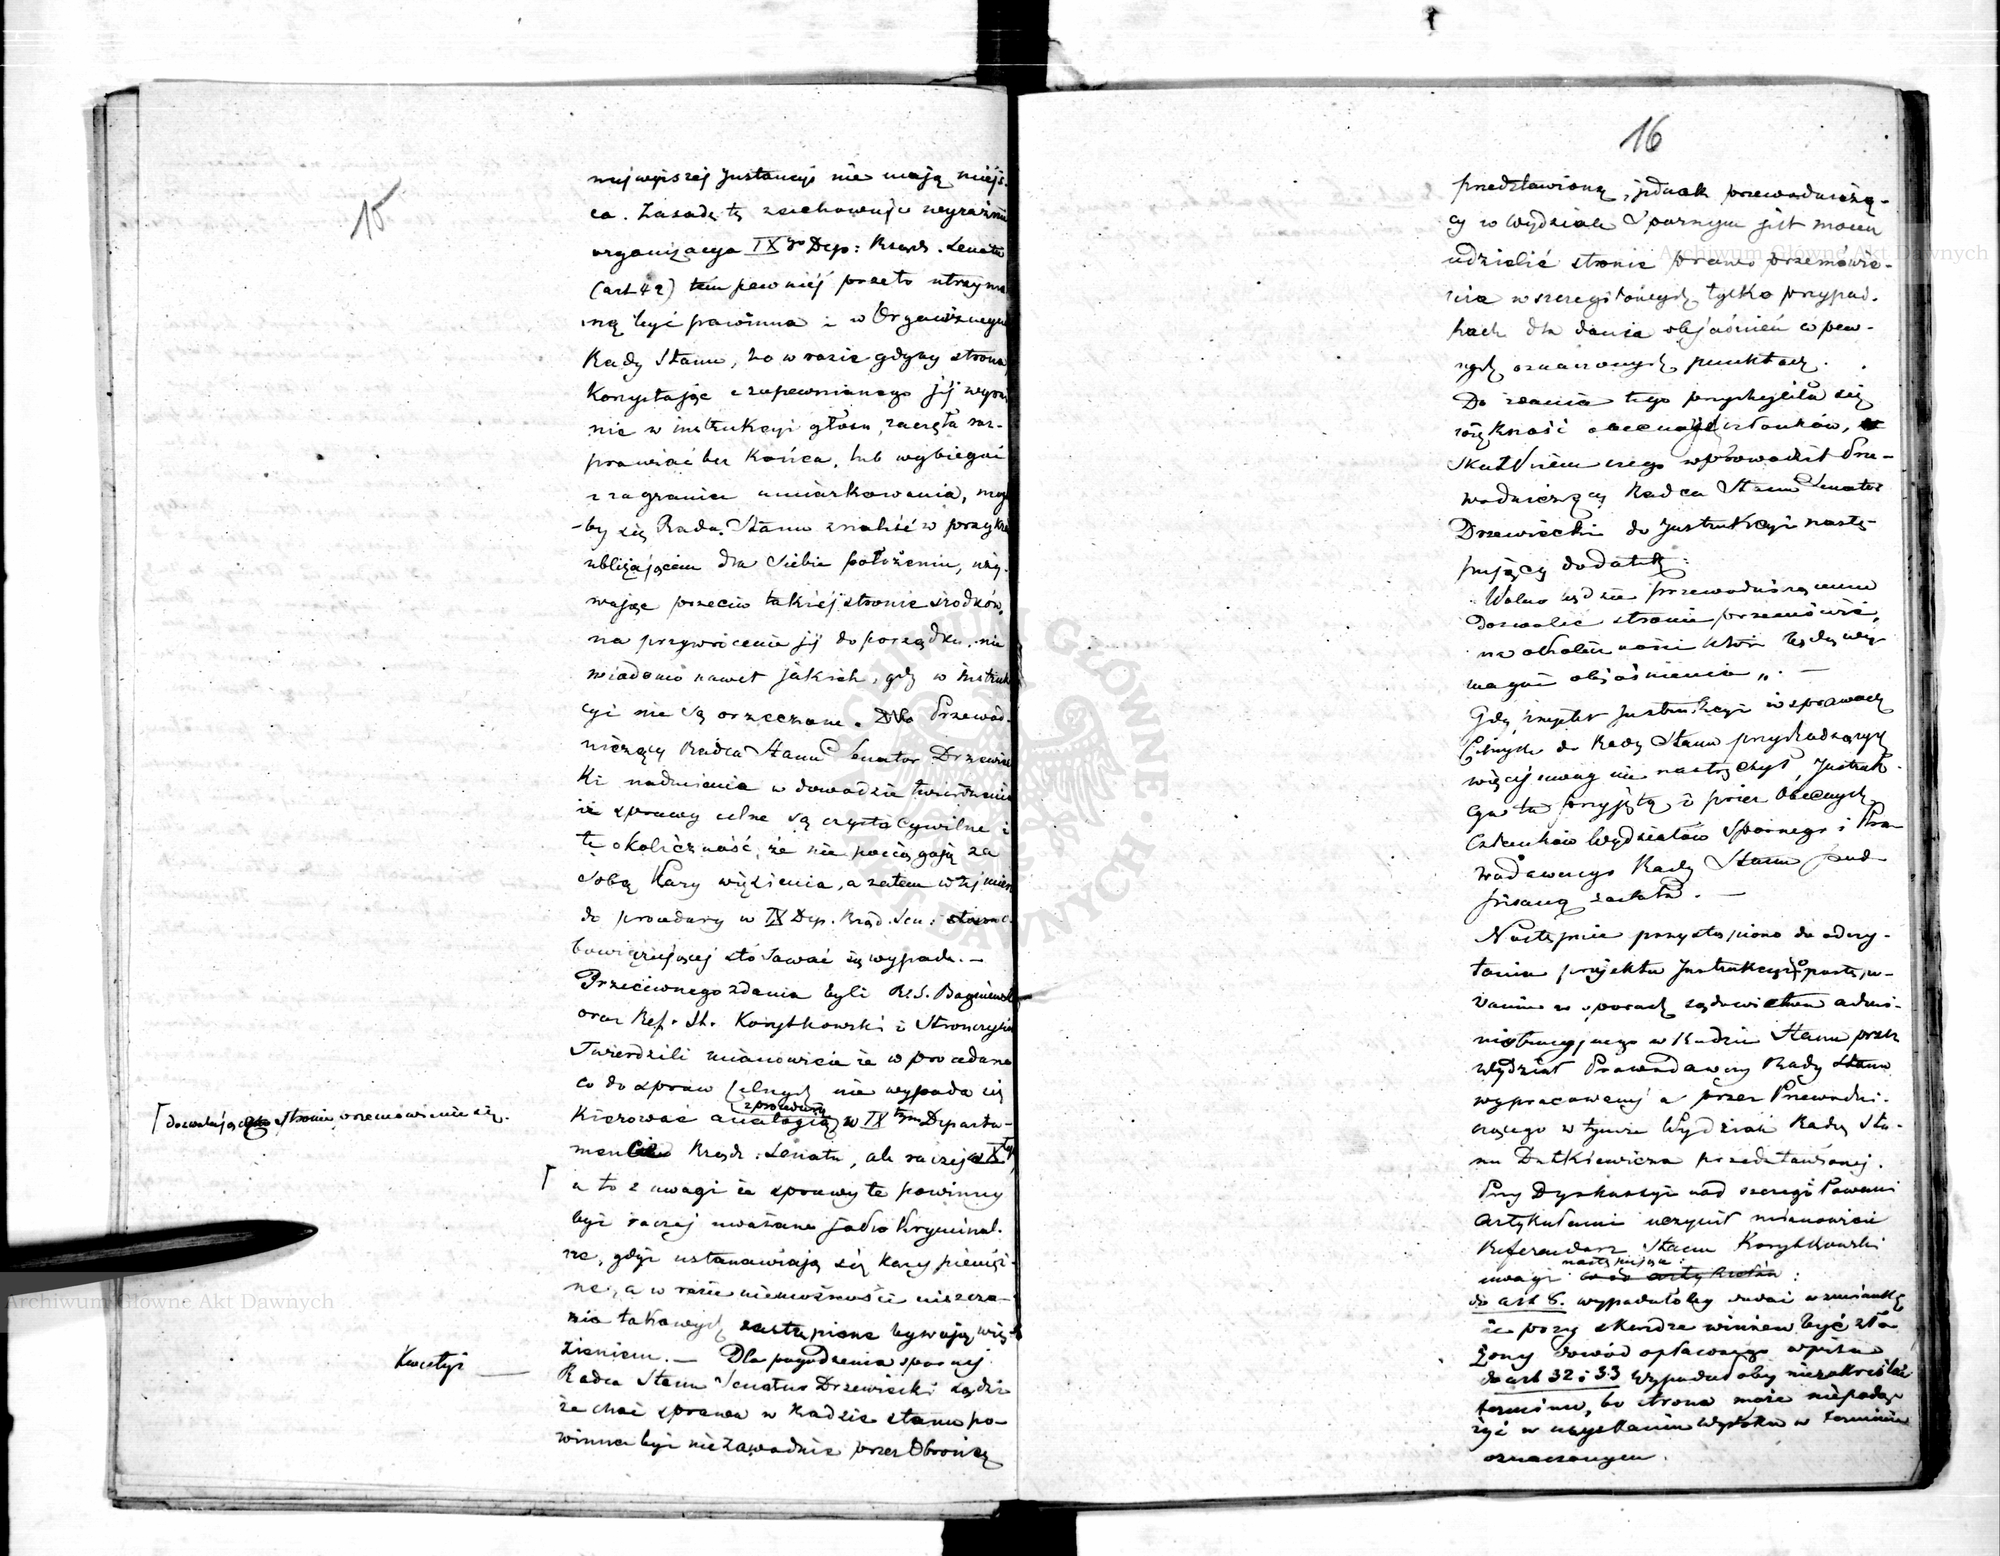 15
najwyższej Instancyi nie mają miejs-
ca. Zasadę tę zachowuje wyraźnie
organizacya IXgo Dep: Rządz. Senatu
(art 42) tém pewniéj przeto utrzyma
ną być powinna i w Organicznym
Rady Stanu, bo w razie gdyby strona
Korzystając z zapewnionego jéj
nie w instrukcyi głosu, zaczęła roz-
prawiać bez Końca, lub wybiegać
z za granic umiarkowania, mogła
-by się Rada Stanu znaleść w przykrem
ubliżającem dla Siebie położeniu, uży-
wając przeciw takiéj stronie środków,
na przywrócenie jéj do porządku, nie
wiadomo nawet jakich, gdy w Instruk
cyi nie są orzeczone. Przewod-
niczący Radca Stanu Senator Drzewiec
ki nadmienia w dowodzie twierdzenia
iż sprawy celne są czysto Cywilne i
tę okoliczność, że nie pociągają za
sobą Kary więzienia, a zatem w téj mierze
do procedury w IX Dep. Rząd. Sen: o-
bowięzującej stósować się wypada. —
Przeciwnego zdania byli R.S.
oraz Ref. St. Korytkowski i Stronczyński
Twierdzili mianowicie że w procedurze
co do spraw Celnych nie wypada się
z procedurą
Kierować analogią w IXtym Departa-
mencie Rządz: Senatu, ale raczej w Xtym
⌈ dozwalającą stronie przemówienie się.
⌈ a to z uwagi że sprawy te powinny
być raczej uważane jako Kryminal-
ne, gdyż ustanawiają się kary pienięż-
ne, a w razie niemożności uiszcze-
nia takowych zastąpione bywają wię-
zieniem. — Dla pogodzenia spornej
Kwestyi —
Radca Stanu Senator Drzewiecki sądzi
że choć sprawa w Radzie stanu po-
winna być niezawodnie przez Obrońcę
16
przedstawioną, jednak przewodniczą-
cy w Wydziale Spornym jest mocen
udzielić stronie prawo przemówie-
nia w szczególnych tylko przypad-
kach dla dania objaśnień w pew-
nych oznaczonych punktach.
Do zdania tego przychyliła się
większość obecnych członków, w
skutku czego wprowadził Prze-
wodniczący Radca Stanu Senator
Drzewiecki do Instrukcyi nastę-
pujący dodatek:
„Wolno będzie przewodniczącemu
dozwolić stronie przemówić,
na okoliczności które będą wy-
magać objaśnienia„. —
Gdy projekt Instrukcyi w sprawach
Celnych do Rady Stanu przychodzących
więcej uwag nie nastręczył, Instruk-
cya ta przyjętą i przez Obecnych
Członków Wydziałów Spornego i Pra-
wodawczego Rady Stanu pod-
pisaną została. —
Następnie przystąpiono do odczy-
tania projektu Instrukcyi o postępo-
waniu w sporach sądownictwa admi-
nistracyjnego w Radzie Stanu przez
wydział Prawodawczy Rady Stanu
wypracowanéj a przez Przewodni-
czącego w tymże Wydziale Radcę Sta-
nu Dutkiewicza przedstawionej.
Przy Dyskussyi nad szczegółowemi
artykułami uczynił mianowicie
Referendarz Stanu Korytkowski
następujące
uwagi co do artykułów:
do art 8. wypadałoby dodać wzmiankę
że przy skardze winien być zło
żony dowód opłaconego wpisu
do art 32 i 33 Wypadałoby niezakréślać
terminu, bo strona może niepodą-
żyć w uzyskaniu wyroku w terminie
oznaczonym.
Archiwum Główne Akt Dawnych
Archiwum Główne Akt Dawnych
ARCHIWUM GŁÓWNE AKT DAWNYCH